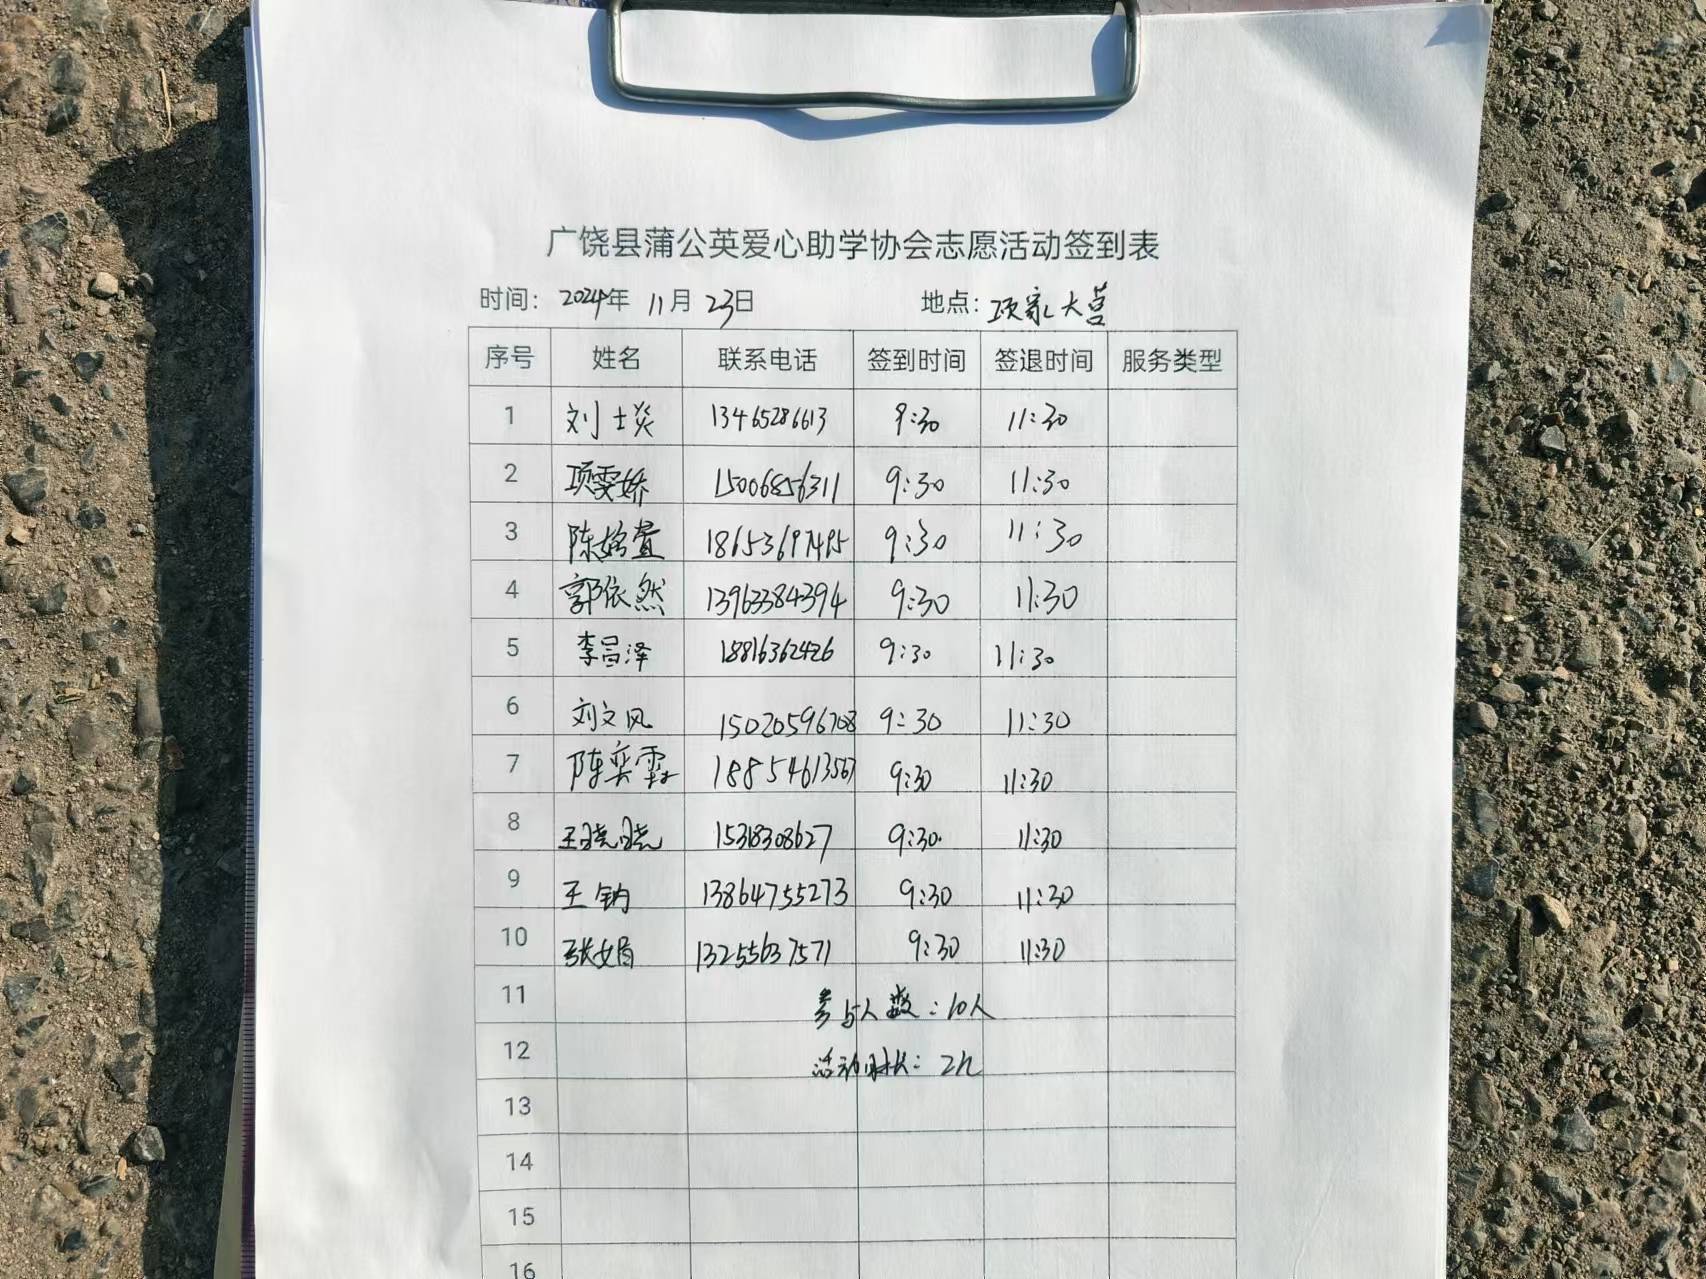 广饶县蒲公英爱心助学协会志愿活动签到表
时间: 2024年 11月 23日 地点: 项家大营
序号 姓名 联系电话 签到时间 签退时间 服务类型
1 刘士炎 13465286613 9:30 11:30
2 项雯娇 15006856311 9:30 11:30
3 陈 9:30 11:30
4 郭依然 13963384394 9:30 11:30
5 李昌泽 18816362426 9:30 11:30
6 刘文风 15020596708 9:30 11:30
7 陈奕霖 18854613567 9:30 11:30
8 王晓晓 15318308627 9:30 11:30
9 王钠 13864755273 9:30 11:30
10 张娟 13255637571 9:30 11:30
11 参与人数:10人
12 活动时长:2h
13
14
15
16